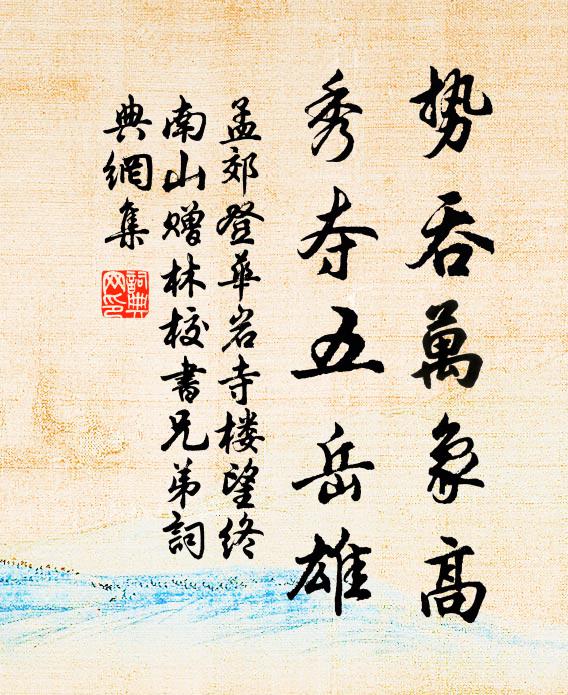 势吞萬象高
秀夺五岳雄
孟郊登華岩寺楼望终
南山赠林校書兄弟詞
典網集
詞典網印